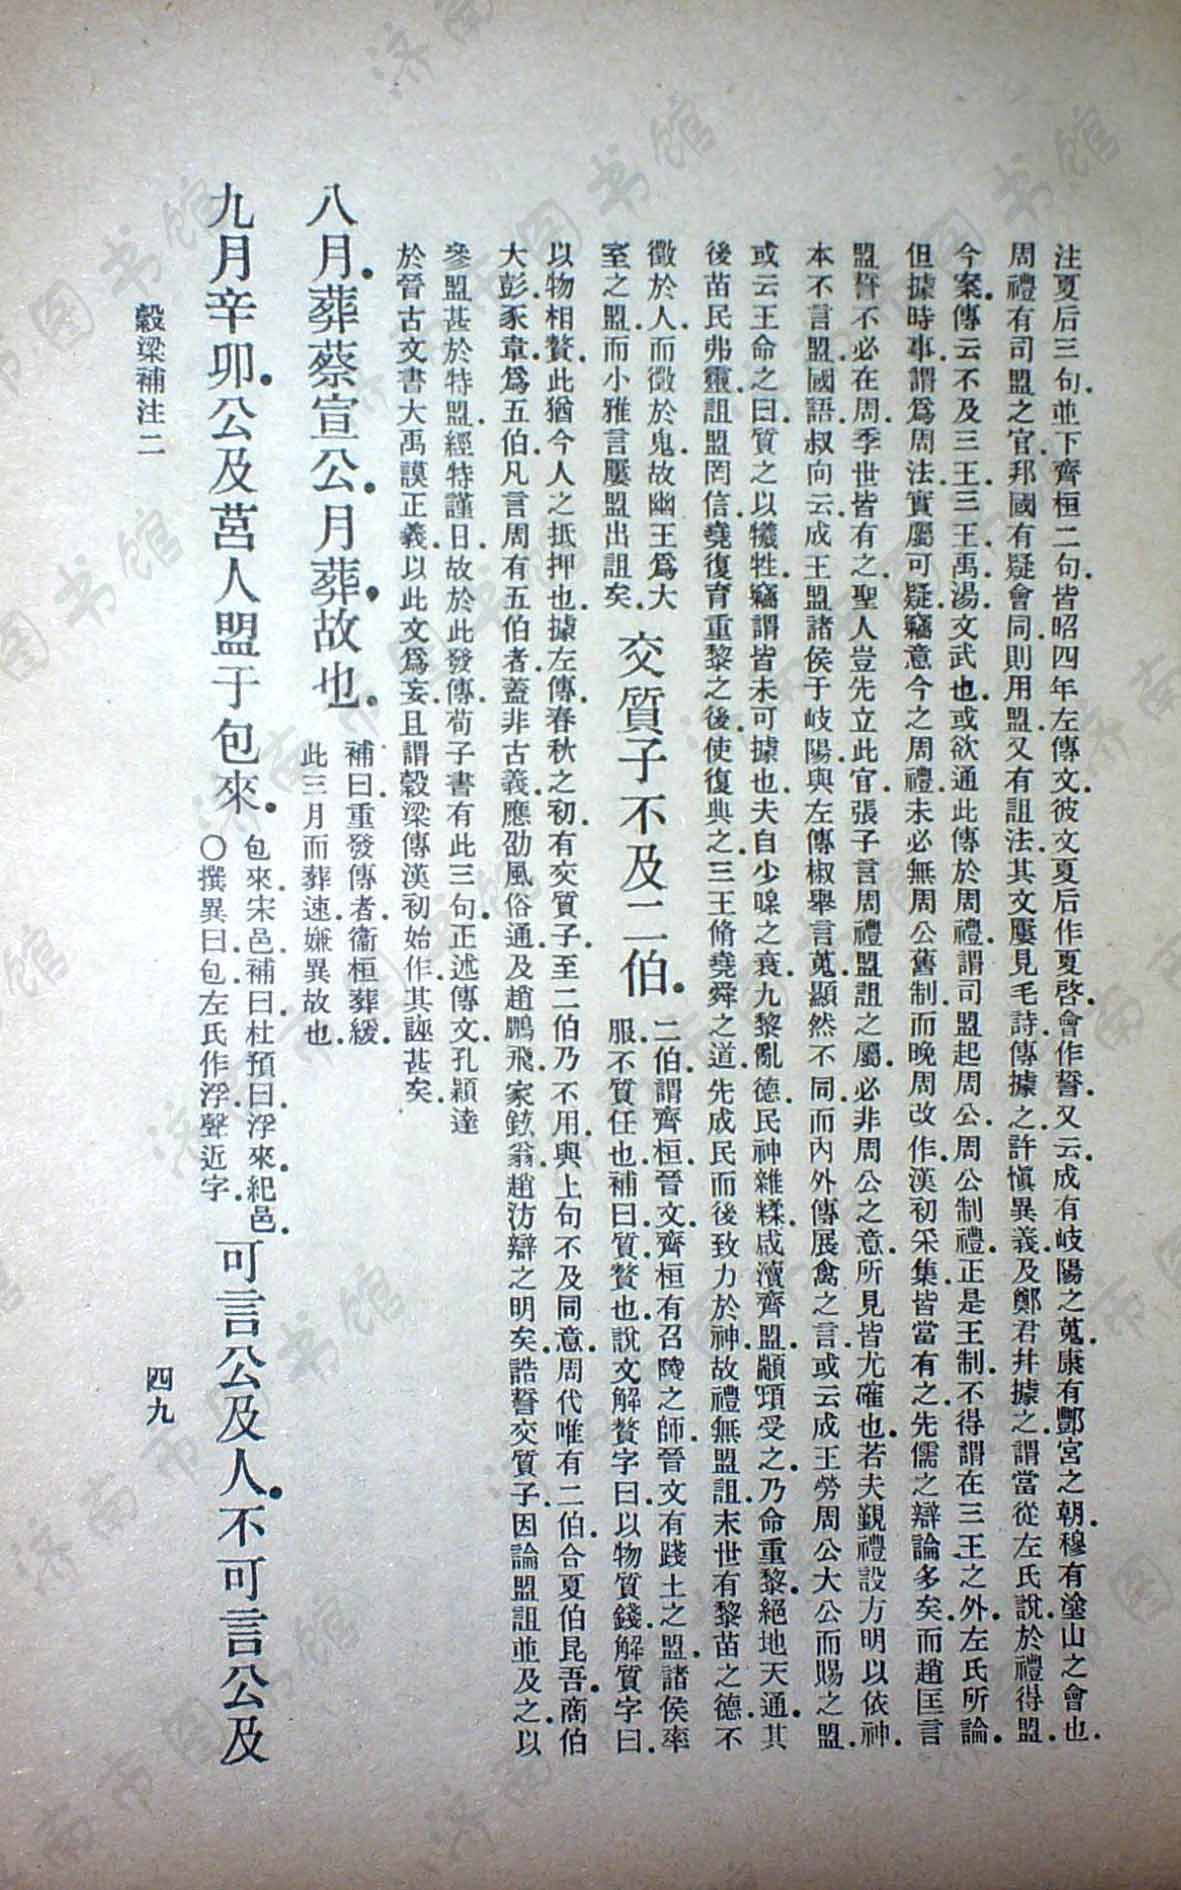 注夏后三句.並下齊桓二句.皆昭四年左傳文.彼文夏后作夏啓.會作誓.又云.成有岐陽之蒐.康有酆宮之朝.穆有塗山之會也.
周禮有司盟之官.邦國有疑會同.則用盟.又有詛法.其文屢見毛詩.傳據之.許愼異義.及鄭君并據之.謂當從左氏說.於禮得盟.
今案.傳云不及三王.三王.禹.湯.文武也.或欲通此傳於周禮.謂司盟起周公.周公制禮.正是王制.不得謂在三王之外.左氏所論.
但據時事.謂爲周法.實屬可疑.竊意今之周禮.未必無周公舊制.而晚周改作.漢初采集.皆當有之.先儒之辯論多矣.而趙匡言
盟誓不必在周.季世皆有之.聖人豈先立此官.張子言周禮盟詛之屬.必非周公之意.所見皆尤確也.若夫覲禮設方明以依神.
本不言盟.國語叔向云.成王盟諸侯于岐陽.與左傳椒舉言蒐.顯然不同.而內外傳展禽之言.或云成王勞周公大公而賜之盟.
或云王命之曰.質之以犧牲.竊謂皆未可據也.夫自少暤之衰.九黎亂德.民神雜糅.烕瀆齊盟.顓頊受之.乃命重黎.絕地天通.其
後苗民弗靈.詛盟罔信.堯復育重黎之後.使復典之.三王脩堯舜之道.先成民而後致力於神.故禮無盟詛.末世有黎苗之德.不
徵於人.而徵於鬼.故幽王爲大
室之盟.而小雅言屢盟出詛矣.
交質子不及二伯.
二伯.謂齊桓.晉文.齊桓有召陵之師.晉文有踐土之盟.諸侯率
服.不質任也.補曰.質.贅也.說文解贅字曰.以物質錢.解質字曰.
以物相贅.此猶今人之抵押也.據左傳.春秋之初.有交質子.至二伯乃不用.與上句不及同意.周代唯有二伯.合夏伯昆吾.商伯
大彭.豕韋.爲五伯.凡言周有五伯者.蓋非古義.應劭風俗通.及趙鵬飛.家鉉翁.趙汸辯之明矣.誥誓交質子.因論盟詛並及之.以
參盟甚於特盟.經特謹日.故於此發傳.荀子書有此三句.正述傳文.孔穎達
於晉古文書大禹謨正義.以此文爲妄.且謂穀梁傳漢初始作.其誣甚矣.
八月.葬蔡宣公.月葬.故也.
補曰.重發傳者.衞桓葬緩.
此三月而葬速.嫌異故也.
九月辛卯.公及莒人盟于包來.
包來.宋邑.補曰.杜預曰.浮來.紀邑.
○撰異曰.包.左氏作浮.聲近字.
可言公及人.不可言公及
穀梁補注二
四九